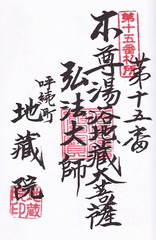 第十五番
第十五番札所
本尊湯浴地蔵大菩薩
弘法大師
呼続町
地蔵院